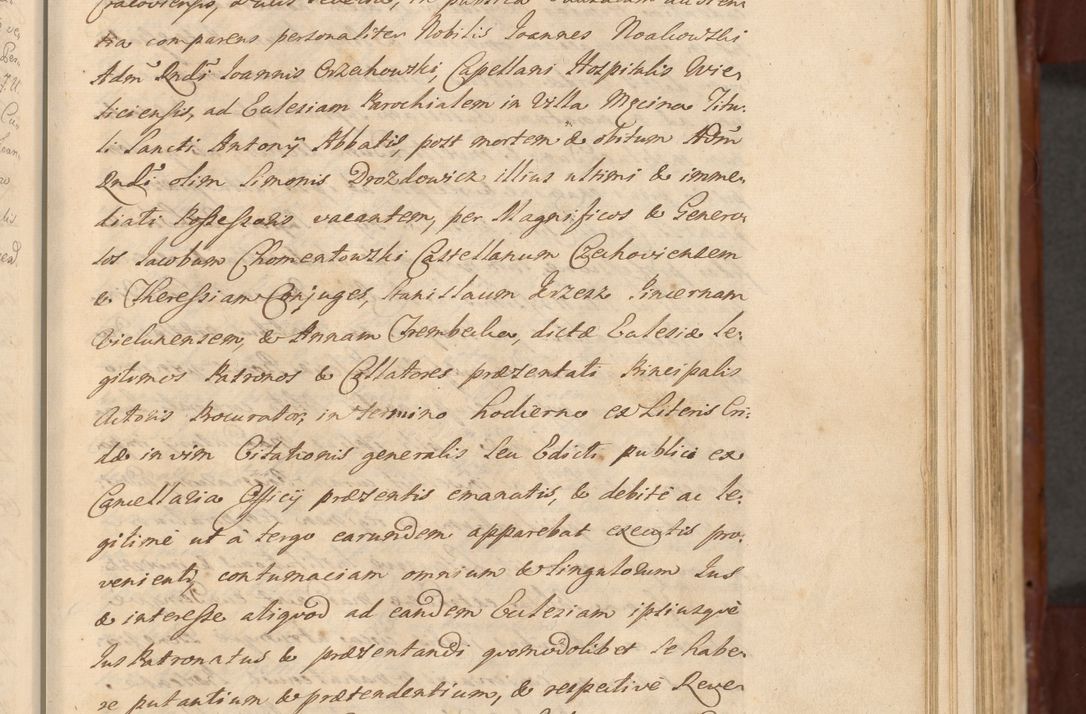 tia comparens personaliter Nobilis Joannes Noakowski
Admː Rndi Joannis Orzechowski, Capellani Hospitalis Wie-
liciensis, ad Ecclesiam Parochialem in Villa Męcina Titu-
li Sancti Antonij Abbatis, post mortem & obitum Adm
Rndi olim Simonis Drozdowicz illius ultimi & imme-
diati Possessoris vacantem, per Magnificos & Genero-
sos Jacobum Chomentowski Castellanum Czechoviensem
& Theressiam Conjuges, Stanislaum Krzesz Pincernam
Vielunensem, & Annam Trembecka, dictæ Ecclesiæ le-
gitimos Patronos & Collatores præsentati Principalis
Actoris Procurator, in termino hodierno ex Literis Cri-
dæ in vim Citationis generalis Seu Edicti publici ex
Cancellaria Officij præsentis emanatis, & debitè ac le-
gitimè ut à tergo earundem apparebat executis pro-
venienti, contumaciam omnium & Singulorum Jus
& interesse aliquod ad eandem Ecclesiam ipsiusquè
Jus Patronatus & præsentandi quomodolibet Se habe-
re putantium & prætendentium, & respectivè Reve-